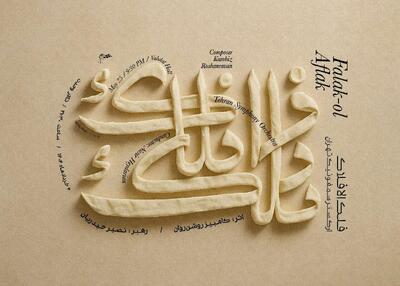 Falak-ol
Aflak
Composer
Kambiz
Roshanravan
May 25 / 9:30 PM / Vahdat Hall
Tehran Symphony Orchestra
Conductor: Nasir Heydarian
فلک الافلاک
ارکستر سمفونیک تهران
اثر: کامبیز روشن‌روان / رهبر: نصیر حیدریان